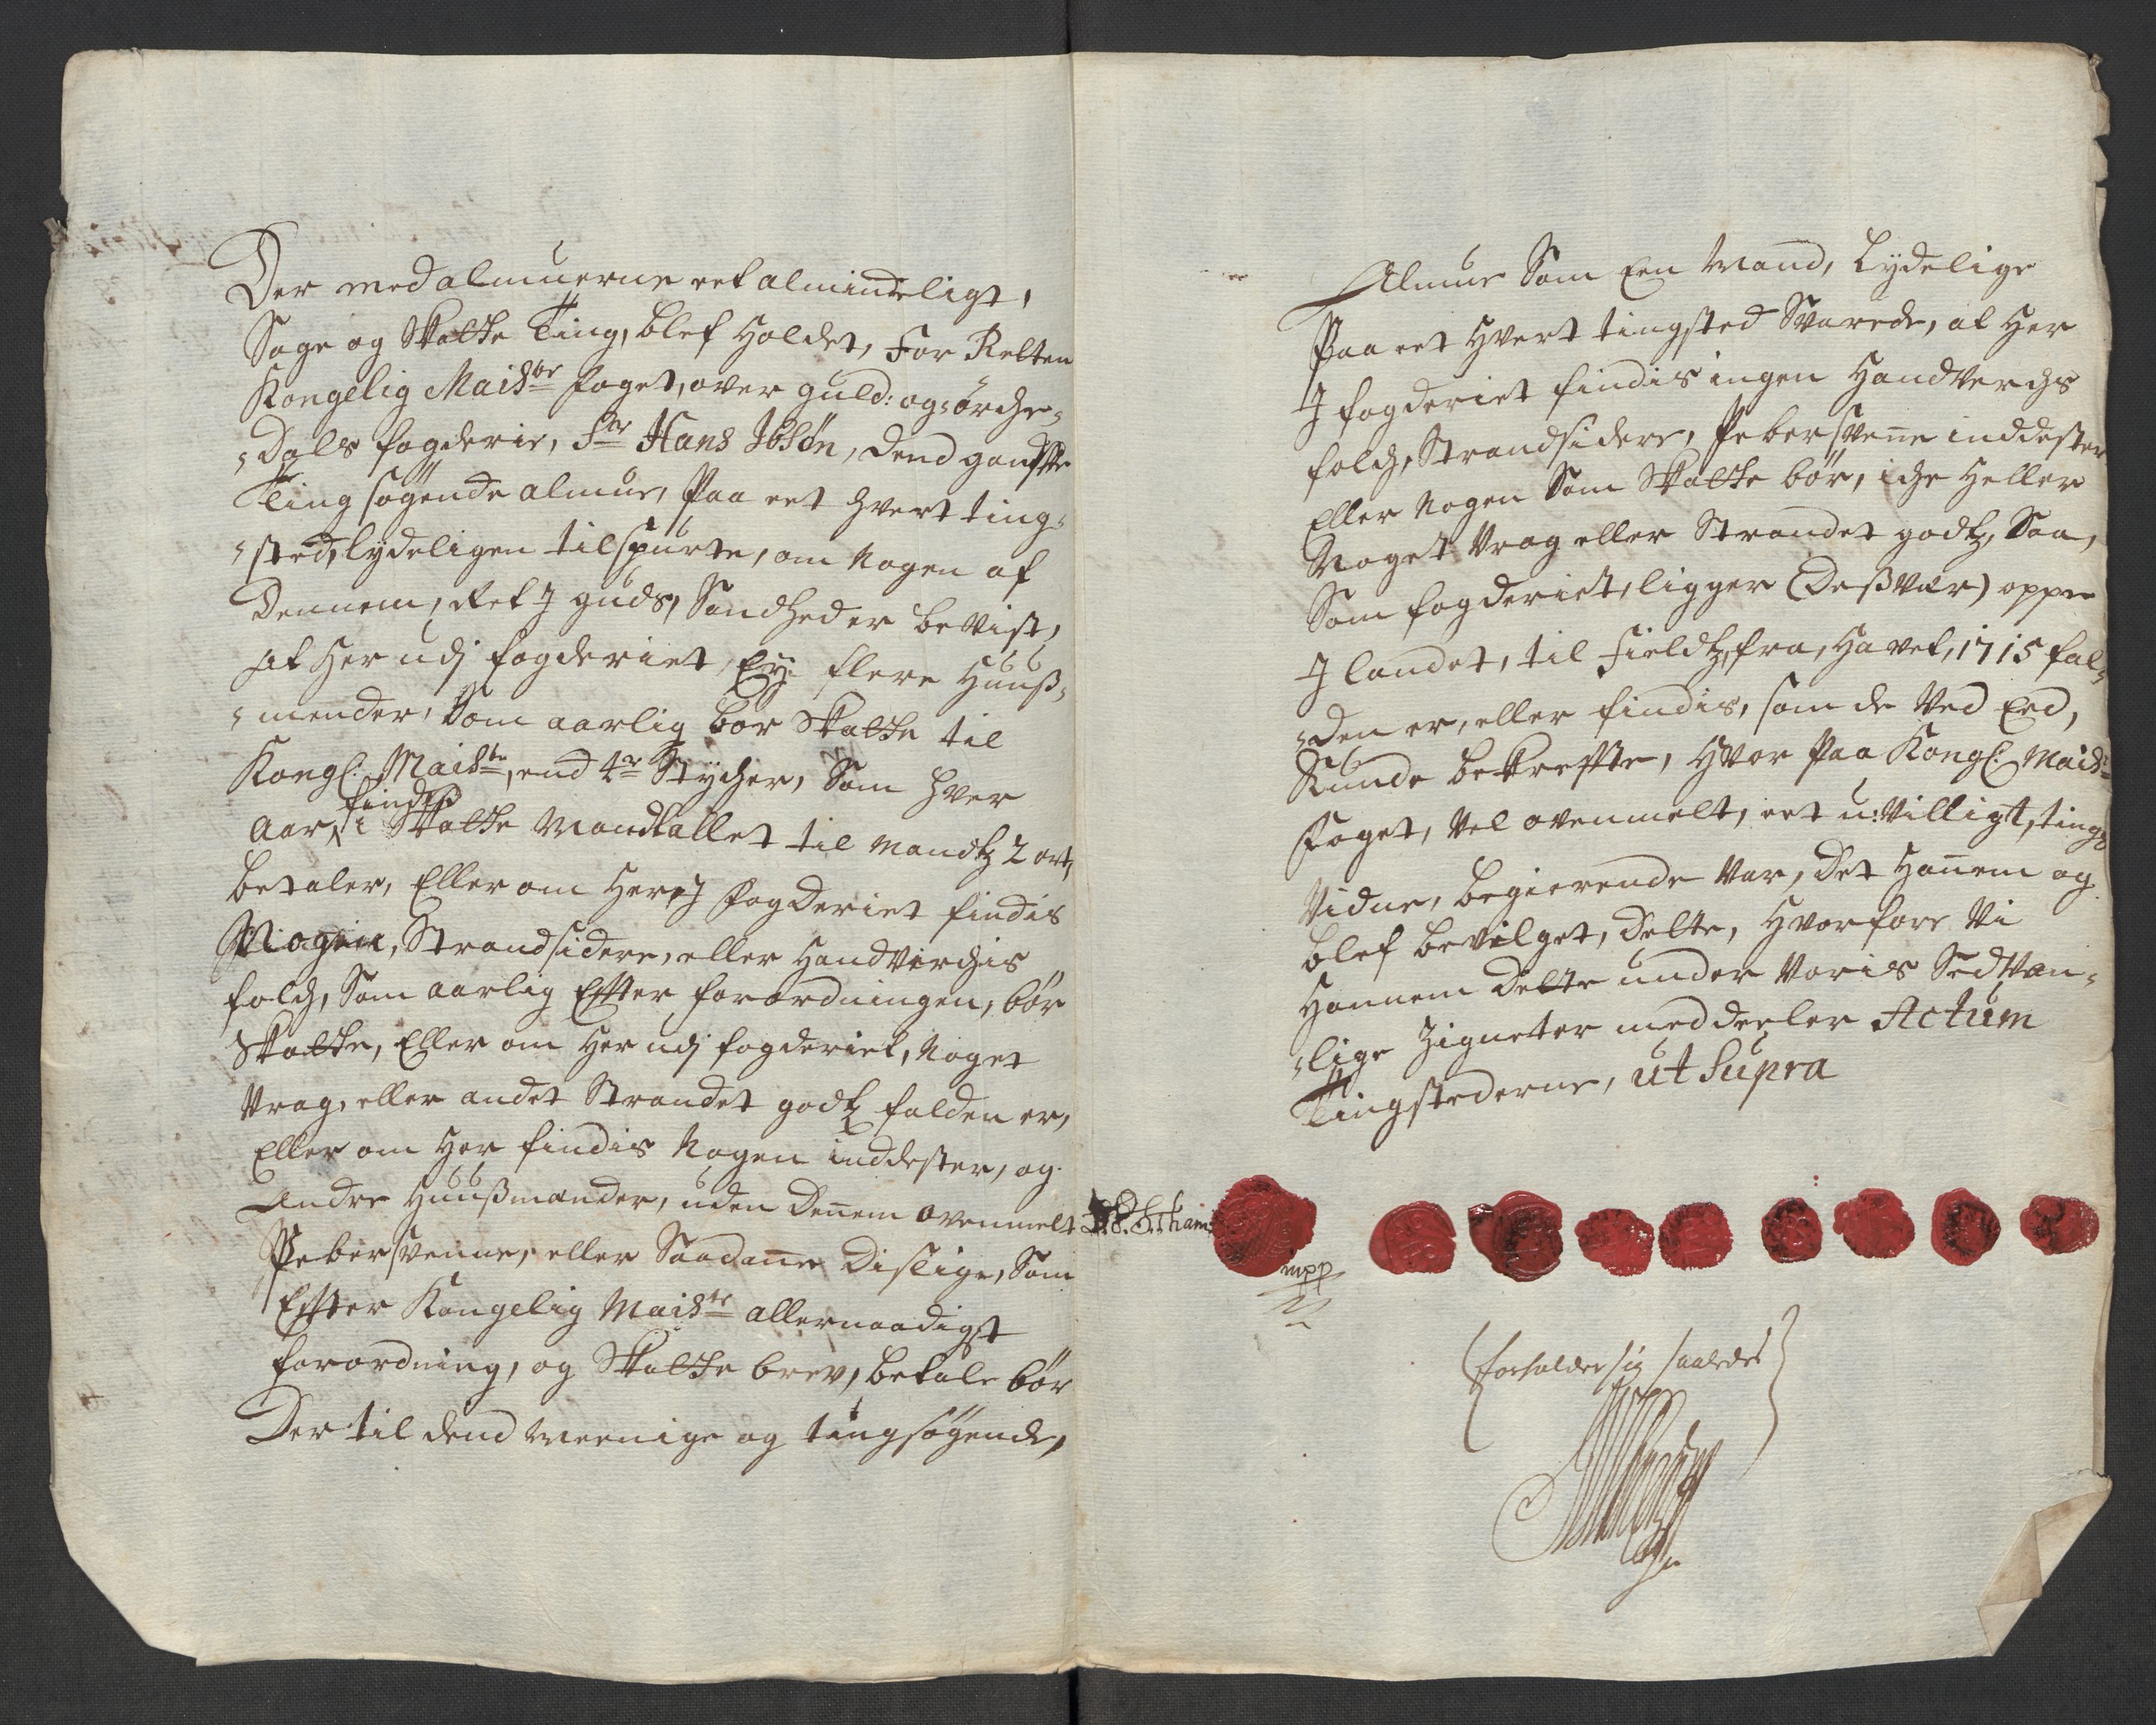 Der med almuerne eet almindeligt,
Sage og Skatte Ting, blef Holdet, For Retten
Kongelig Maÿsts foget, over guld: og orche-
Dals fogderie, Sr Hans Ibsøn, dend gandske
Ting søgende almue, Paa eet hvert ting-
sted, lydeligen tilspurte, om Nogen af
Dennem, Ret J guds, Sandhed er beVist,
at Her udj fogderiet, Eÿ flere Huuß-
mender, Som aarlig bør Skatte til
Kongl. Maÿsts, end 4re Stÿcher, Som hver
Aar, findeß i Skatte Mandtallet til Mandtz 2 ort,
betaler, Eller om Her J fogderiet findis
Nogen, Strandsidere, eller Handverchis
folch, Som aarlig Effter forordningen, bør
Skatte, Eller om Her udj fogderiet, Noget
Vrag, eller andet Strandet godtz falden er,
Eller om Her findis Nogen inddester, og
Andre Huußmænder, uden Denem ovenmelt
Pebersvenne, eller Saadanne Dislige, Som
Effter Kongelig Maÿsts allernaadigst
forordning, og Skatte brev, betale bør
Der til dend meenige og tingsøgende,
Almue Som Een Mand, Lydelige
Paa eet Hvert tingsted Svarede, at Her
J fogderiet findis ingen Handverchs
folch, Strandsidere, Pebersvenne inddester
Eller Nogen Som Skatte bør, iche Heller
Noget Vrag eller Strandet godtz, Saa,
Som fogderiet, ligger (Deßvær) oppe
J landet, til Fieldtz, fra, Havet, 1715 fal-
den er, eller findis, som de Ved Eed,
Kunde bekreffte, Hvor Paa Kongl. Maÿsts
Foget, Vel ovenmelt, eet u:Villigt, tings
Vidne, begierende Var, Det Hannem og
blef bevilget, Dette, Hvorfore Vi
Hannem Dette under Voris SedVan-
lige Zigneter meddeeler Actum
Tingstederne, ut Supra
mpp
forholder sig saaledes